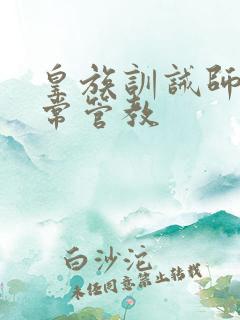 皇族訓誡師
常管教
白沙沱
未经同意禁止转载